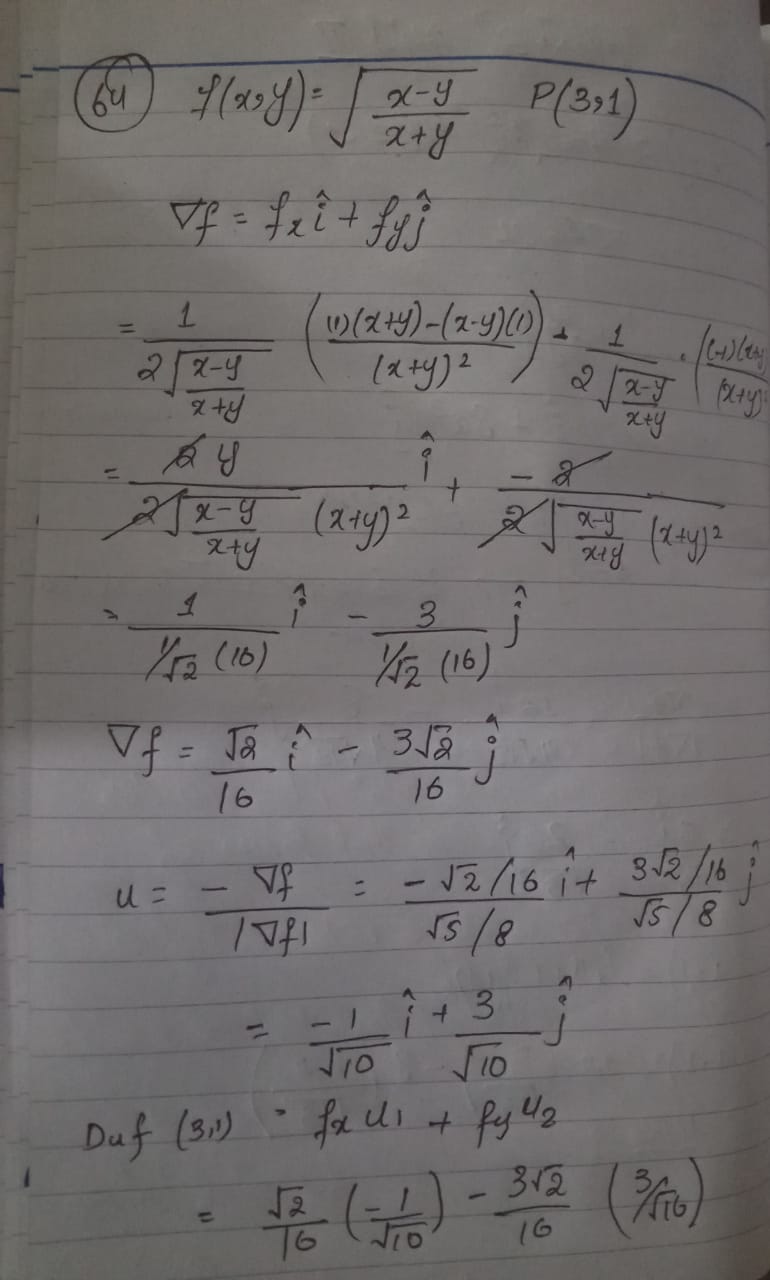 64 f(x,y) = √((x-y)/(x+y)) P(3,1)
∇f = fx î + fy ĵ
= 1/(2√((x-y)/(x+y))) ((1)(x+y)-(x-y)(1))/(x+y)² + 1/(2√((x-y)/(x+y))) · ((-1)(x+y)/(x+y)²
= 2y/(2√((x-y)/(x+y)) (x+y)²) î + -2/(2√((x-y)/(x+y)) (x+y)²)
= 1/(1/√2 (16)) î - 3/(1/√2 (16)) ĵ
∇f = √2/16 î - 3√2/16 ĵ
u = - ∇f/|∇f| = (-√2/16)/(√5/8) î + (3√2/16)/(√5/8) ĵ
= -1/√10 î + 3/√10 ĵ
Duf (3,1) = fx u₁ + fy u₂
= √2/16 (-1/√10) - 3√2/16 (3/√10)